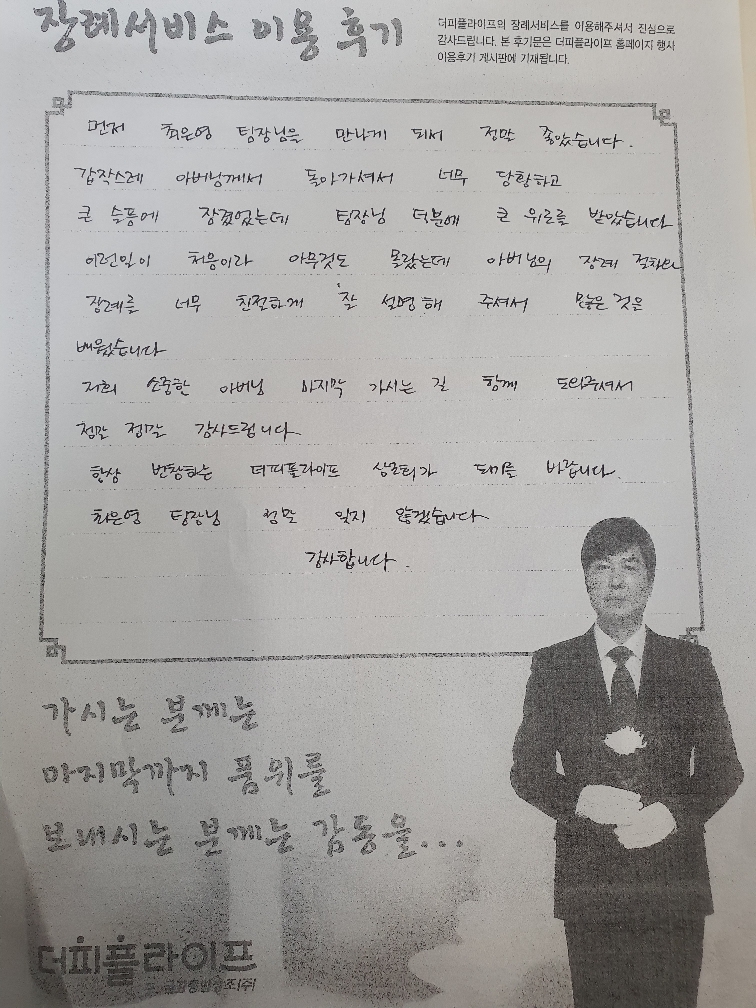 장례서비스 이용 후기
더피플라이프의 장례서비스를 이용해주셔서 진심으로
감사드립니다. 본 후기문은 더피플라이프 홈페이지 행사
이용후기 게시판에 기재됩니다.
먼저 최은영 팀장님을 만나게 되서 정말 좋았습니다.
갑작스레 아버님께서 돌아가셔서 너무 당황하고
큰 슬픔에 잠겼었는데 팀장님 덕분에 큰 위로를 받았습니다
이런일이 처음이라 아무것도 몰랐는데 아버님의 장례 절차와
장례를 너무 친절하게 잘 설명해 주셔서 많은 것을
배웠습니다
저희 소중한 아버님 마지막 가시는 길 함께 도와주셔서
정말 정말 감사드립니다.
항상 번창하는 더피플라이프 상조회가 되기를 바랍니다.
최은영 팀장님 정말 잊지 않겠습니다.
감사합니다.
가시는 분께는
마지막까지 품위를
보내시는 분께는 감동을...
더피플라이프